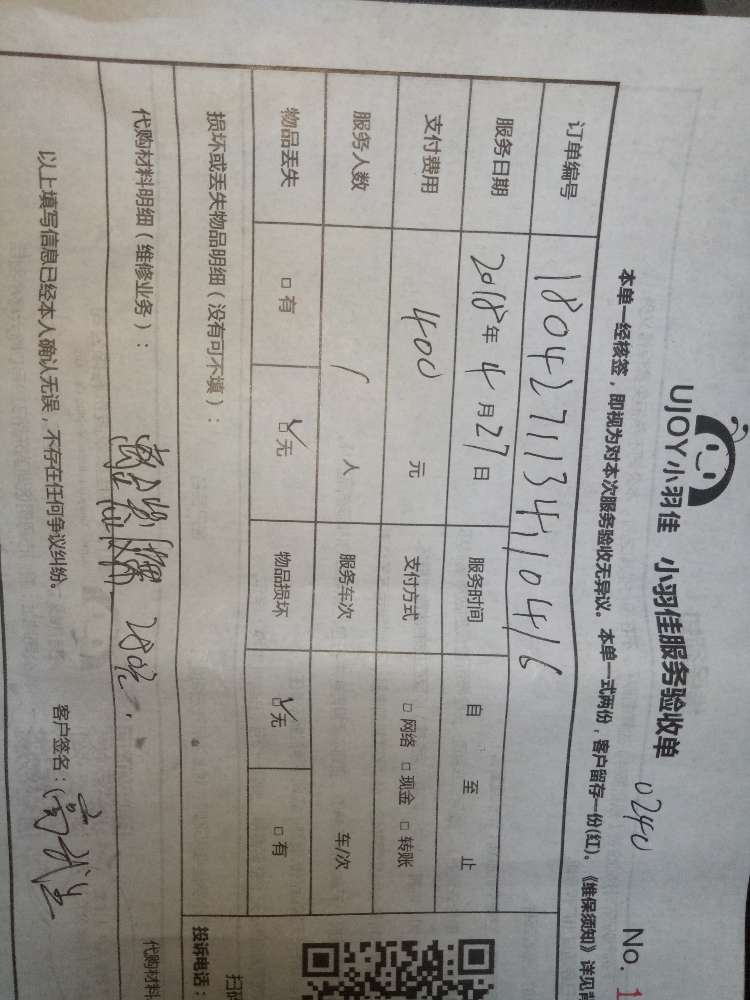 UJOY小羽佳 小羽佳服务验收单 0240 No. 1
本单一经核签，即视为对本次服务验收无异议。本单一式两份，客户留存一份(红)。《维保须知》详见背
订单编号 1804271134110416
服务日期 2018年4月27日 服务时间 自 至 止
支付费用 400 元 支付方式 □网络 □现金 □转账
服务人数 1 人 服务车次 车/次
物品丢失 □有 ☑无 物品损坏 ☑无 □有
损坏或丢失物品明细（没有可不填）：
代购材料明细（维修业务）：
代购材料
以上填写信息已经本人确认无误，不存在任何争议纠纷。 客户签名：
扫码
投诉电话：